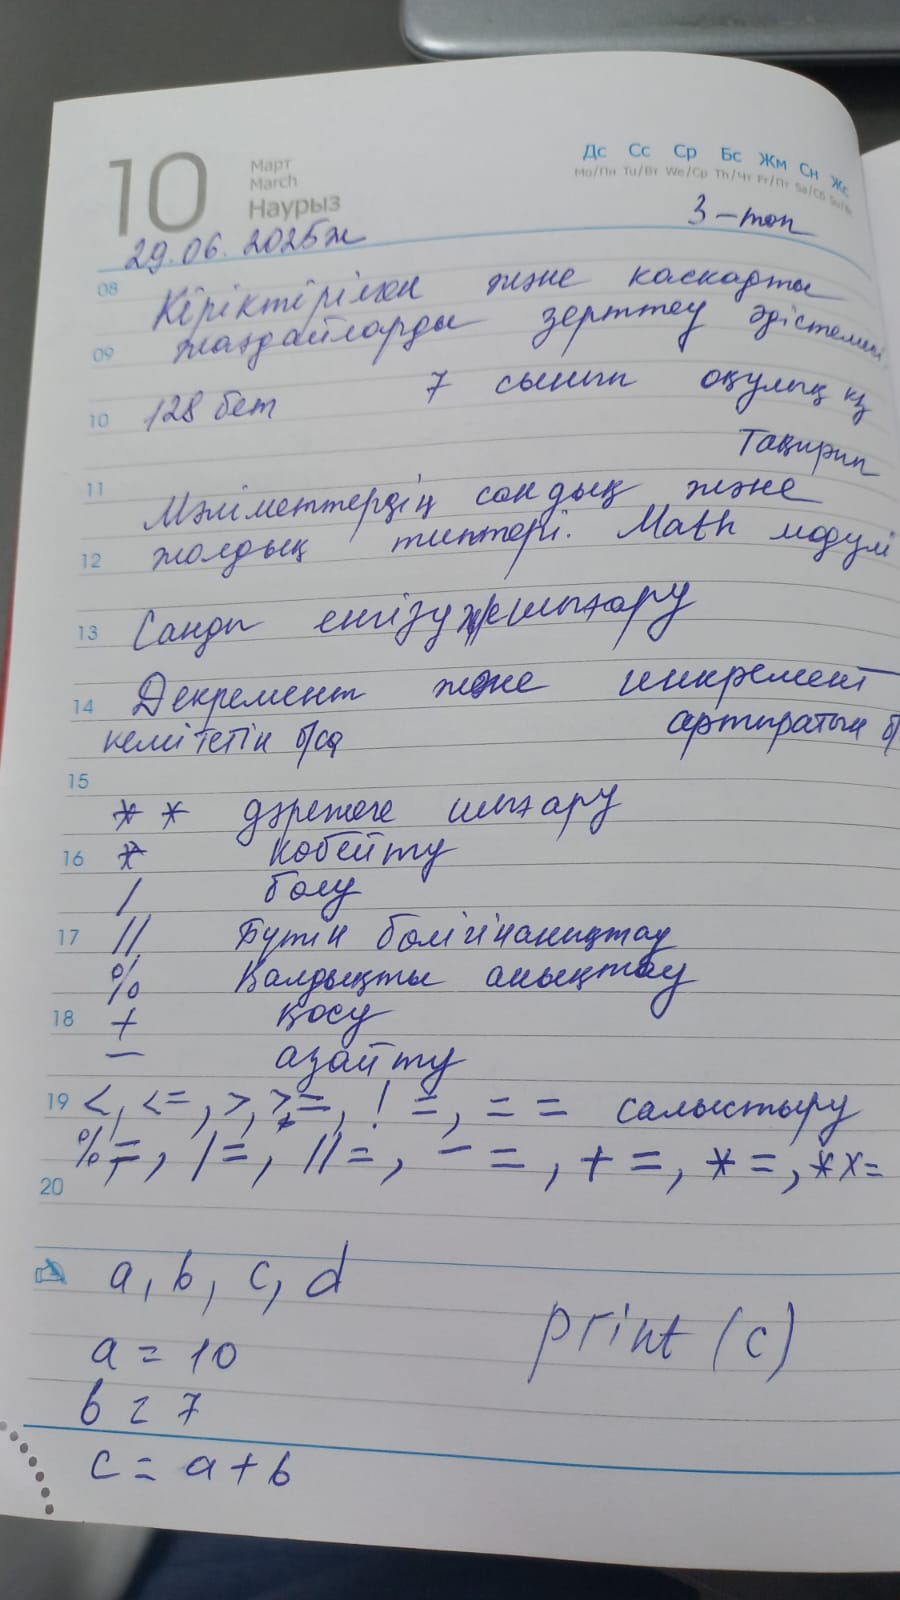 10
Март
March
Наурыз
Дс Сс Ср Бс Жм Сн Жс
Mo/Пн Tu/Вт We/Ср Th/Чт Fr/Пт Sa/Сб Su/Вс
29.06.2025ж
3-топ
08 Кіріктірілген және каскадты
09 жағдайларды зерттеу әдістемесі
10 128 бет 7 сынып оқулық
Тақырып
11 Мәліметтердің сандық және
12 жолдық типтері. Math модулі
13 Санды енгізу ж/е шығару
14 Декремент және инкремент
кемітетін б/са артыратын б/
15
** дәрежеге шығару
16 * көбейту
/ бөлу
17 // Бүтін бөлігін анықтау
% Қалдықты анықтау
18 + қосу
- азайту
19 <, <=, >, >=, !=, == салыстыру
%=, /=, //=, -=, +=, *=, **=
20
a, b, c, d
print (c)
a = 10
b = 7
c = a + b